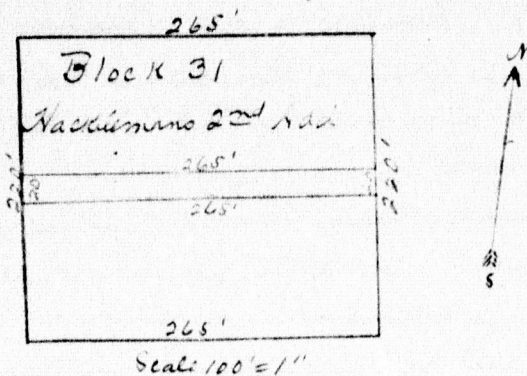 265'
Block 31
Hacklemans 2nd Add
265'
220'
20
20
220'
265'
265'
Scale 100' = 1"
N
S